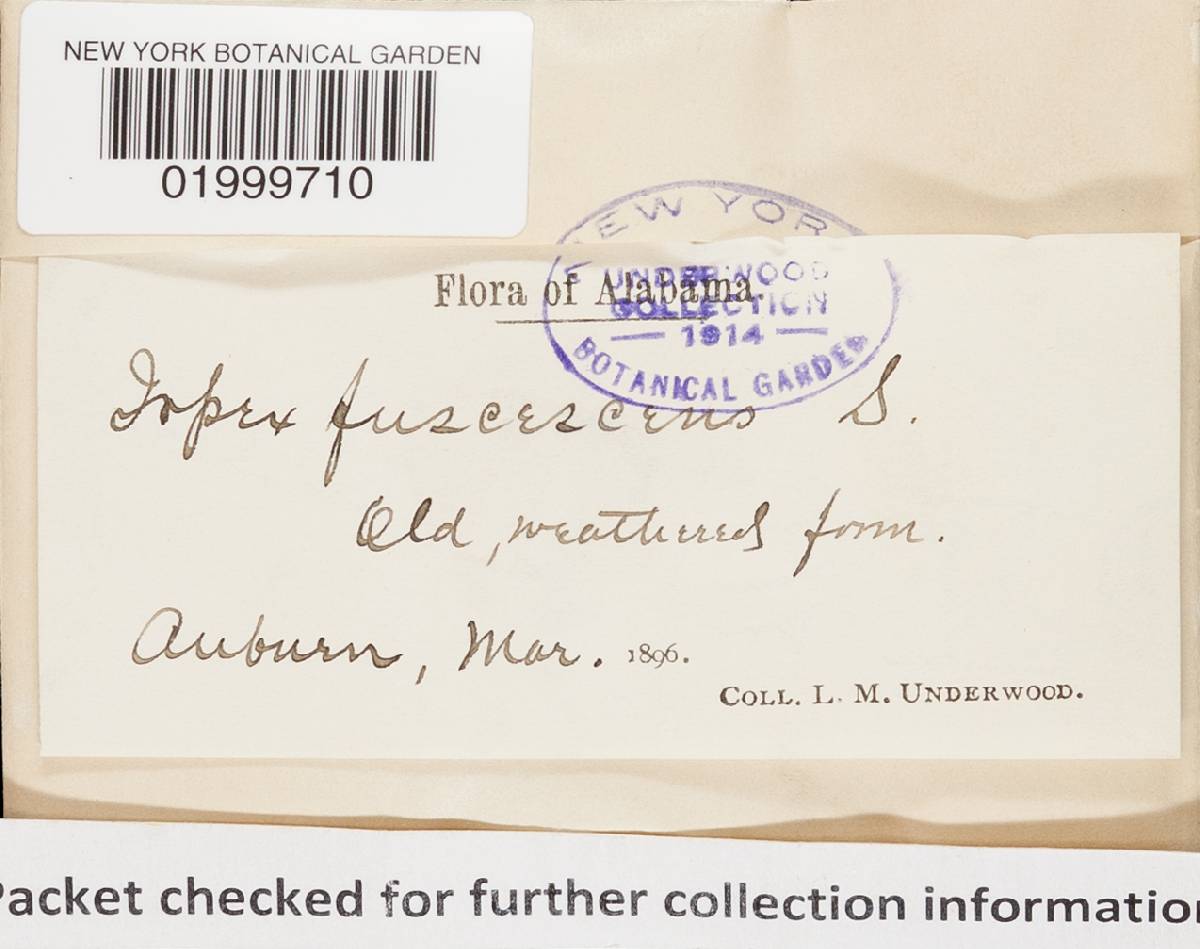 NEW YORK BOTANICAL GARDEN
01999710
NEW YORK
UNDERWOOD
COLLECTION
— 1914 —
BOTANICAL GARDEN
Flora of Alabama
Irpex fuscescens S.
Old, weathered form.
Auburn, Mar. 1896.
COLL. L. M. UNDERWOOD.
Packet checked for further collection information